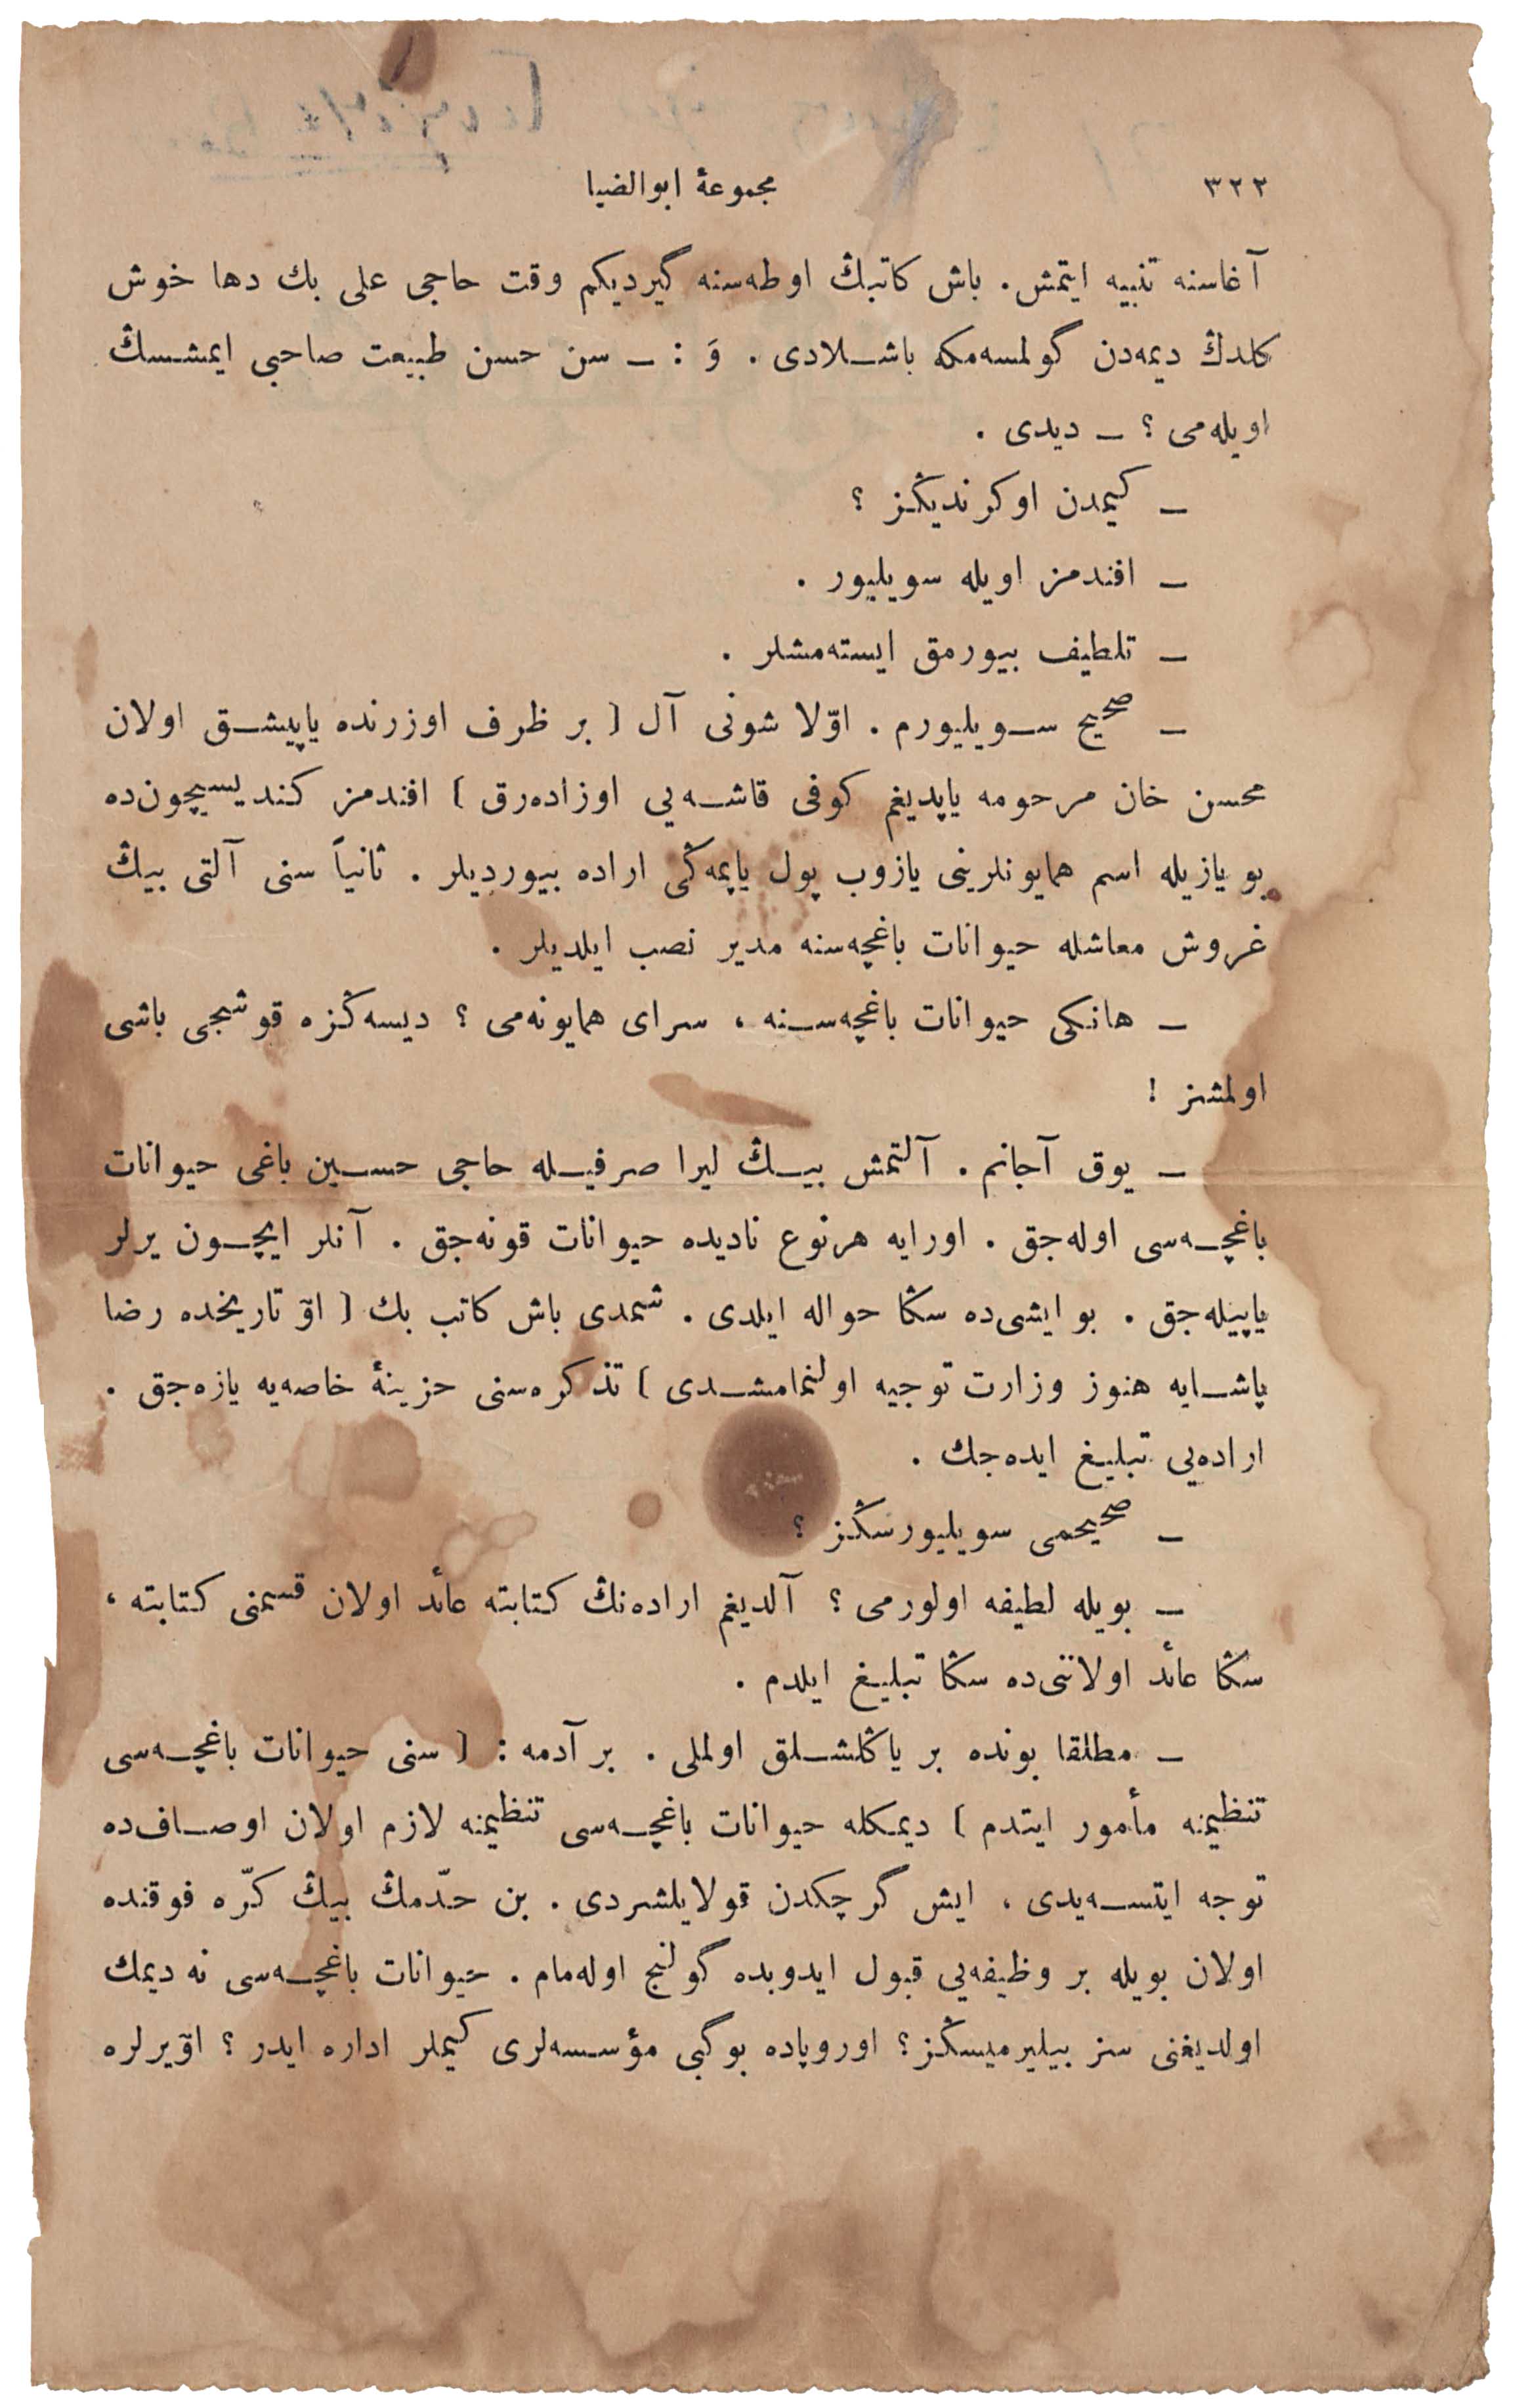 ٣٢٢
مجموعۀ ابوالضیا
آغاسنه تنبیه ایتمش. باش کاتبڭ اوطه‌سنه گیردیکم وقت حاجی علی بك دها خوش
کلدڭ دیمه‌دن گولمسه‌مکه باشلادی. وَ : ــ سن حسن طبیعت صاحبی ایمشسڭ
اویله‌می ؟ ــ دیدی.
ــ کیمدن اوکرندیڭز ؟
ــ افندمز اویله سویلیور.
ــ تلطیف بیورمق ایسته‌مشلر.
ــ صحیح سویلیورم. اوّلا شونی آل ( بر ظرف اوزرنده یاپیشق اولان
محسن خان مرحومه یاپدیغم کوفی قاشه‌یی اوزاده‌رق ) افندمز کندیسیچون‌ده
بو یازیله اسم همایونلرینی یازوب پول یاپمه‌ڭی اراده بیوردیلر. ثانیاً سنی آلتی بیڭ
غروش معاشله حیوانات باغچه‌سنه مدیر نصب ایلدیلر.
ــ هانکی حیوانات باغچه‌سنه ، سرای همایونه‌می ؟ دیسه‌ڭزه قوشجی باشی
اولمشز !
ــ یوق آجانم. آلتمش بیڭ لیرا صرفیله حاجی حسین باغی حیوانات
باغچه‌سی اوله‌جق. اورایه هرنوع نادیده حیوانات قونه‌جق. آنلر ایچون یرلر
یاپیله‌جق. بو ایشی‌ده سڭا حواله ایلدی. شمدی باش کاتب بك ( اوٓ تاریخده رضا
پاشایه هنوز وزارت توجیه اولنمامشدی ) تذکره‌سنی خزینۀ خاصه‌یه یازه‌جق.
اراده‌یی تبلیغ ایده‌جك.
ــ صحیحمی سویلیورسڭز ؟
ــ بویله لطیفه اولورمی ؟ آلدیغم اراده‌نڭ کتابته عائد اولان قسمنی کتابته ،
سڭا عائد اولاننی‌ده سڭا تبلیغ ایلدم.
ــ مطلقا بونده بر یاڭلشلق اولملی. بر آدمه : ( سنی حیوانات باغچه‌سی
تنظیمنه مأمور ایتدم ) دیمکله حیوانات باغچه‌سی تنظیمنه لازم اولان اوصاف‌ده
توجه ایتسه‌یدی ، ایش گرچکدن قولایلشردی. بن حدّمڭ بیڭ کرّه فوقنده
اولان بویله بر وظیفه‌یی قبول ایدوبده گولنج اوله‌مام. حیوانات باغچه‌سی نه دیمك
اولدیغنی سز بیلیرمیسڭز ؟ اوروپاده بوگبی مؤسسه‌لری کیملر اداره ایدر ؟ اوٓیرلره